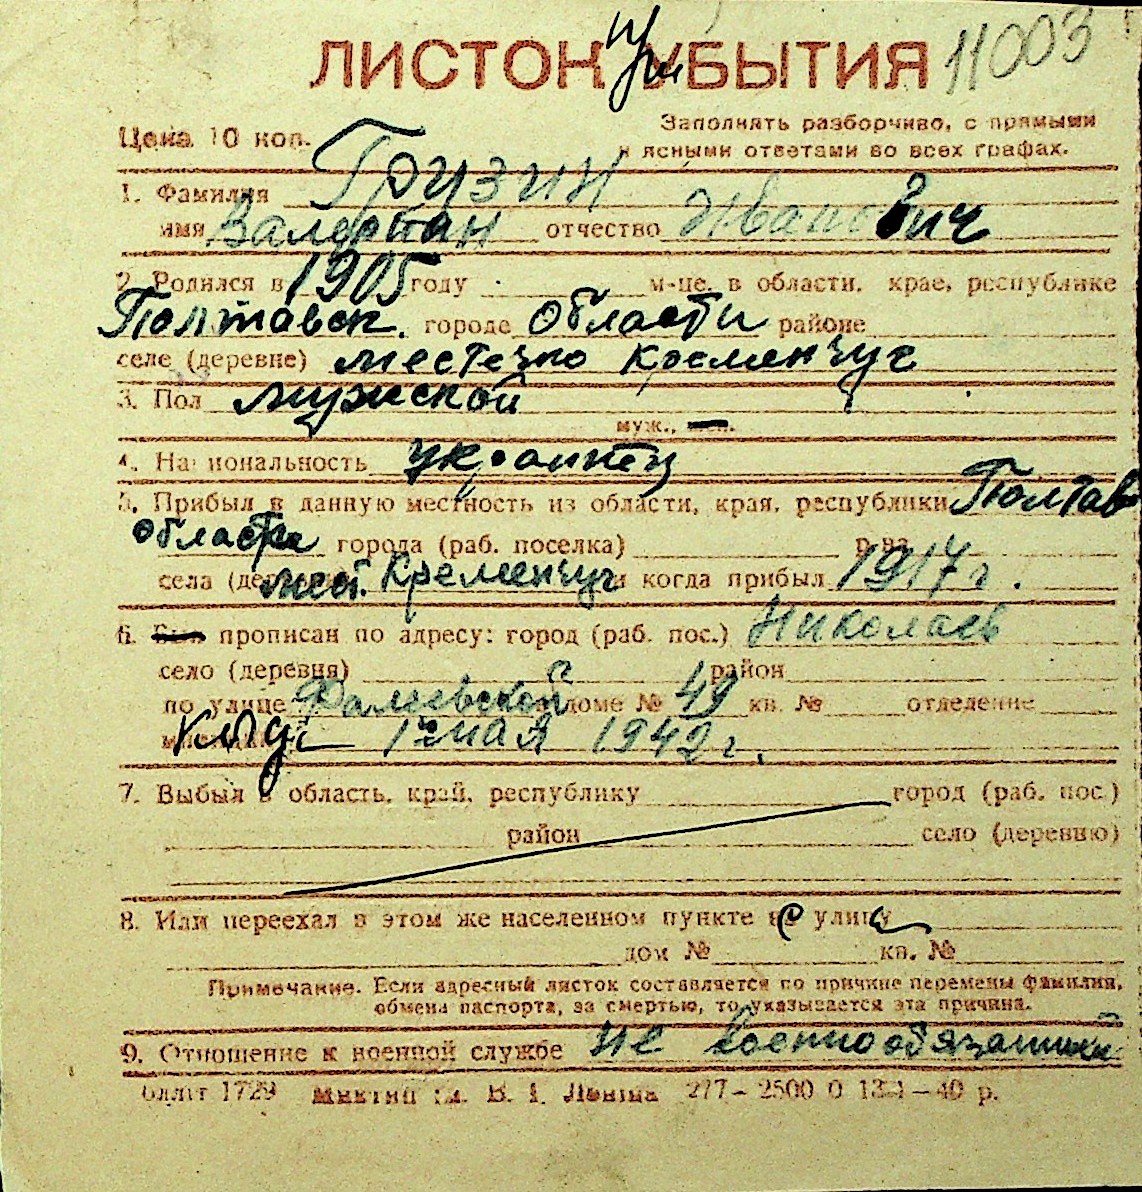 ЛИСТОК УБЫТИЯ 11003
Цена 10 коп.
Заполнять разборчиво, с прямыми
и ясными ответами во всех графах.
1. Фамилия Грузин
имя Валериан отчество Иванович
2. Родился в 1905 году м-це, в области, крае, республике
Полтавск. городе области районе
селе (деревне) местечко Кременчуг
3. Пол мужской
муж., жен.
4. Национальность украинец
5. Прибыл в данную местность из области, края, республики Полтав
области города (раб. поселка) р-на
села (деревни) мест. Кременчуг и когда прибыл 1917 г.
6. Был прописан по адресу: город (раб. пос.) Николаев
село (деревня) район
по улице Фалеевской доме № 49 кв. № отделение
милиции 12 мая 1942 г.
7. Выбыл в область, край, республику город (раб. пос.)
район село (деревню)
8. Или переехал в этом же населенном пункте на улицу
дом № кв. №
Примечание. Если адресный листок составляется по причине перемены фамилии,
обмена паспорта, за смертью, то указывается эта причина.
9. Отношение к военной службе не военнообязанный
1729 В. І. Леніна 277 – 2500 0 – 40 р.